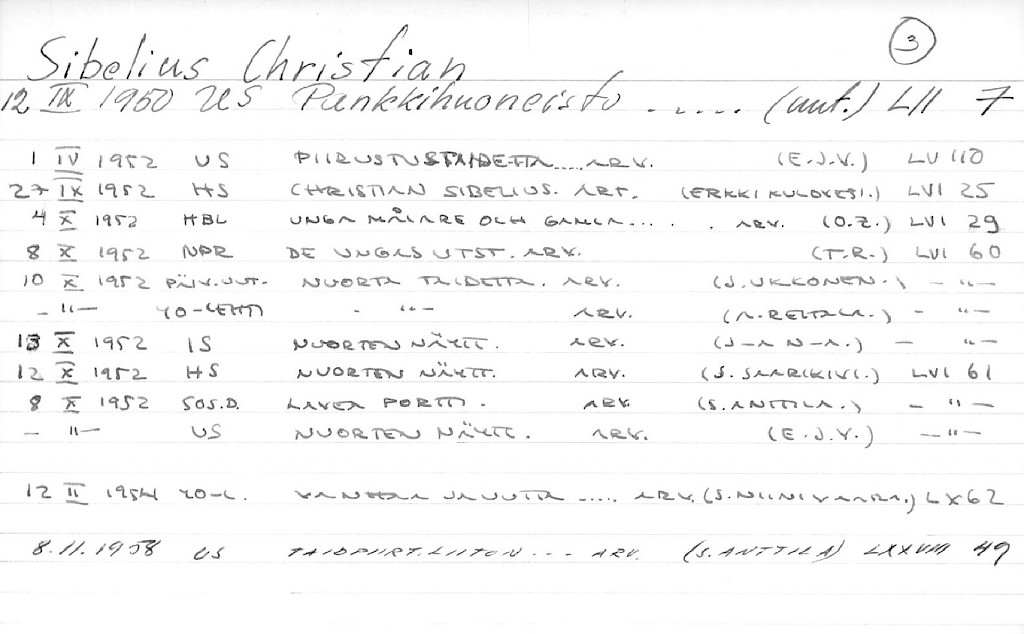 3
Sibelius Christian
12 IX 1950 US Pankkihuoneisto ..... (uut.) LII 7
1 IV 1952 US PIIRUSTUSTAIDETTA.... ARV. (E.J.V.) LV 110
27 IX 1952 HS CHRISTIAN SIBELIUS. ART. (ERKKI KULOVESI.) LVI 25
4 X 1952 HBL UNGA MÅLARE OCH GAMLA.... . ARV. (O.Z.) LVI 29
8 X 1952 NPR DE UNGAS UTST. ARV. (T.R.) LVI 60
10 X 1952 PÄIV.UUT. NUORTA TAIDETTA. ARV. (J.UKKONEN.) - " -
- " - YO-LEHTI - " - ARV. (A.REITALA.) - " -
13 X 1952 IS NUORTEN NÄYTT. ARV. (J-A N-A.) - " -
12 X 1952 HS NUORTEN NÄYTT. ARV. (S.SAARIKIVI.) LVI 61
8 X 1952 SOS.D. LAVEA PORTTI. ARV. (S.ANTTILA.) - " -
- " - US NUORTEN NÄYTT. ARV. (E.J.V.) - " -
12 II 1954 YO-L. VANHAA JA UUTTA ..... ARV. (S.NIINIVAARA.) LX 62
8.11.1958 US TAIDPIIRT.LIITON... ARV. (S.ANTTILA) LXXVIII 49